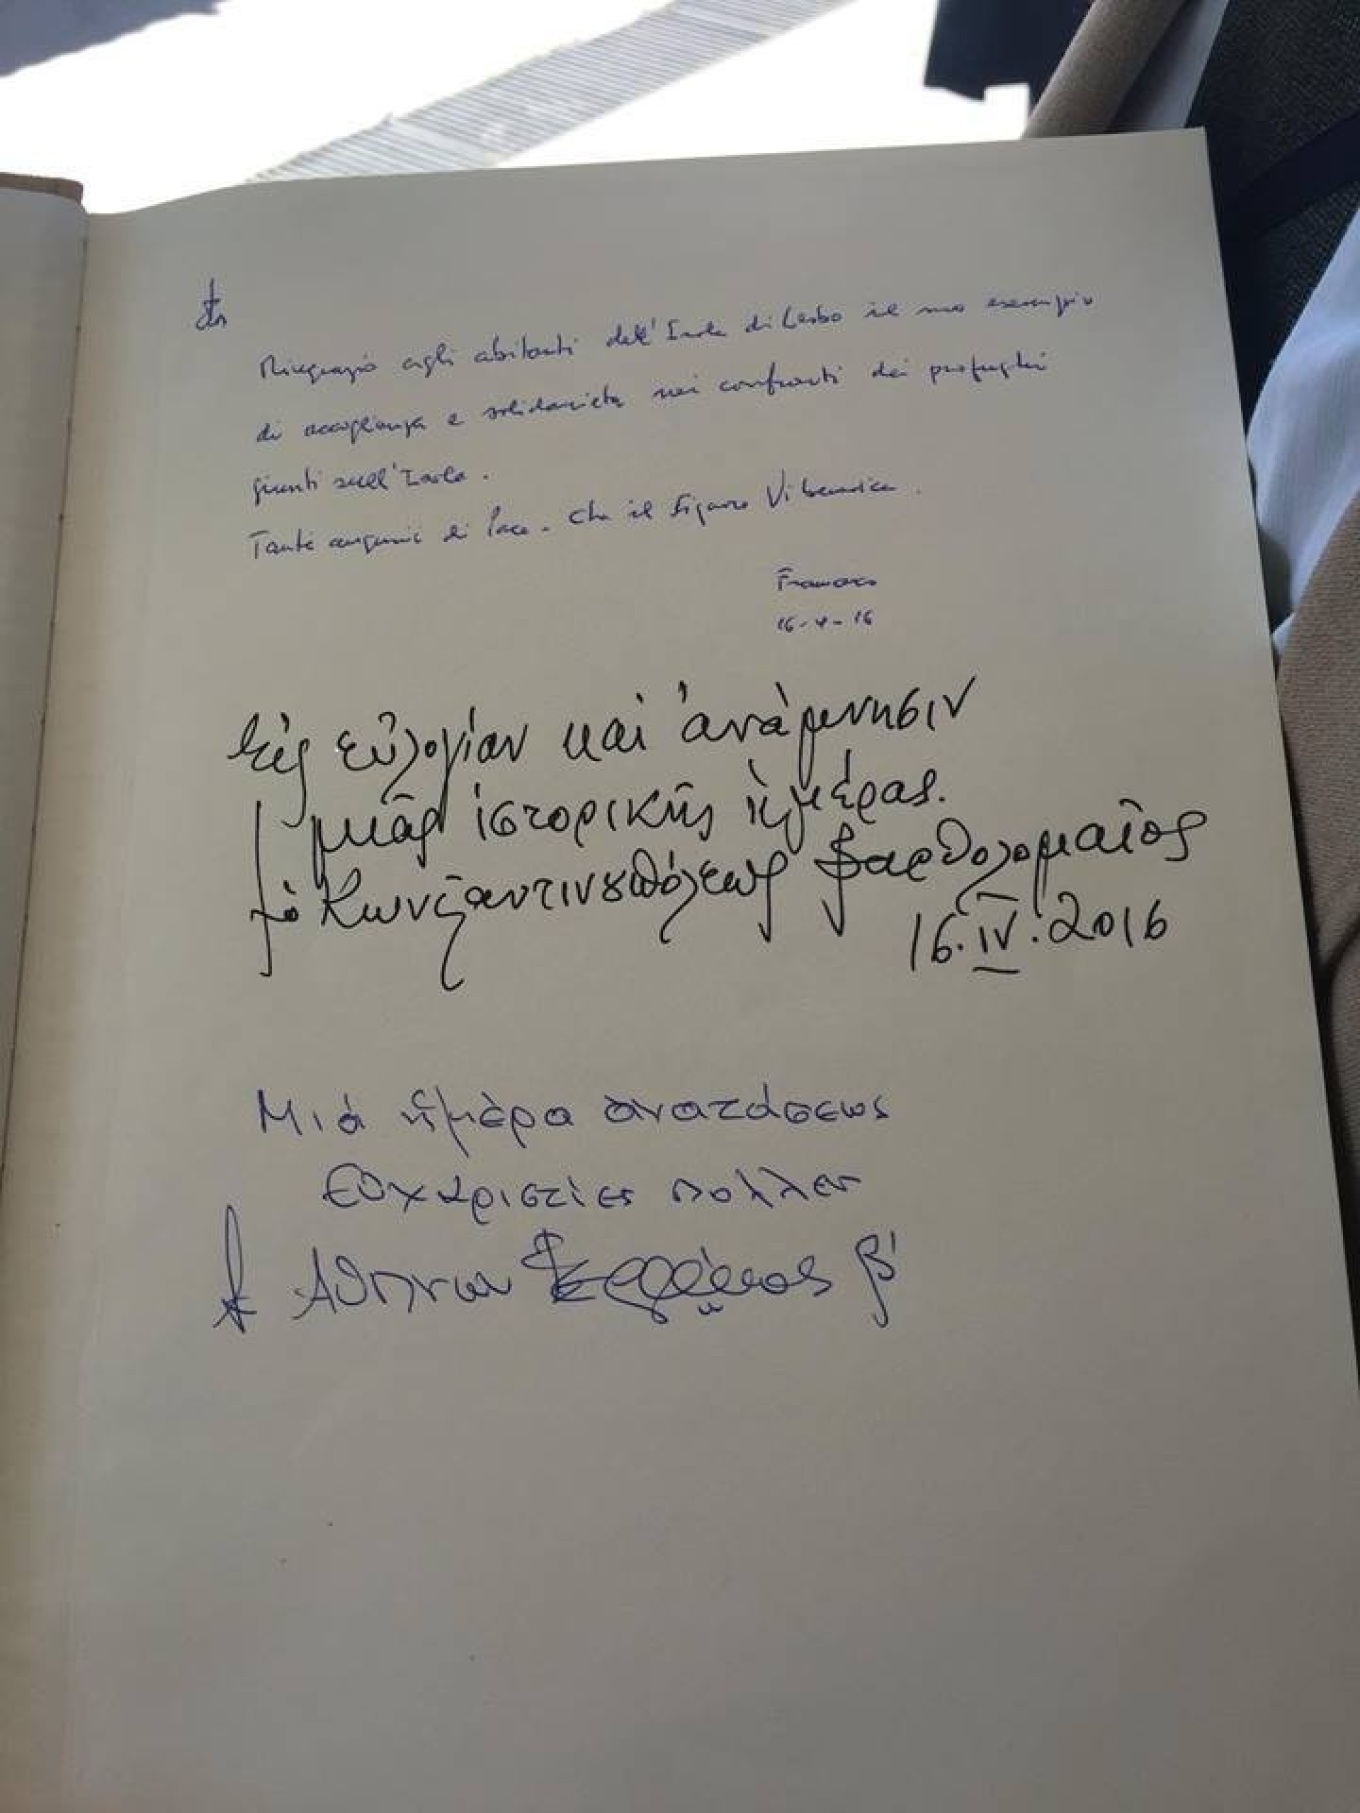 Ringrazio agli abitanti dell'Isola di Lesbo il suo esempio
di accoglienza e solidarietà nei confronti dei profughi
giunti sull'Isola.
Tanti auguri di Pace. Che il Signore Vi benedica.
Francesco
16-4-16
Εἰς εὐλογίαν καὶ ἀνάμνησιν
μιᾶς ἱστορικῆς ἡμέρας.
†ὁ Κωνσταντινουπόλεως Βαρθολομαῖος
16.IV.2016
Μιά ἡμέρα ἀναστάσεως
Εὐχαριστίες πολλές
† Ἀθηνῶν Ἱερώνυμος β'